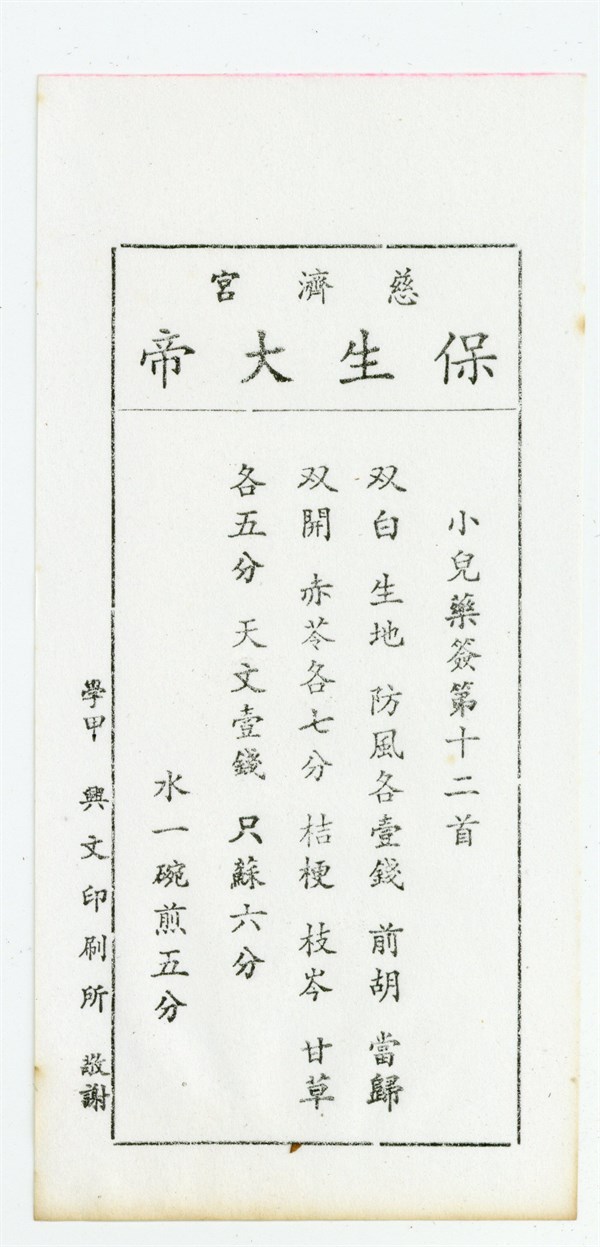 慈濟宮
保生大帝
小兒藥簽第十二首
双白 生地 防風各壹錢 前胡 當歸
双開 赤苓各七分 桔梗 枝岑 甘草
各五分 天文壹錢 只蘇六分
水一碗煎五分
學甲 興文印刷所 敬謝